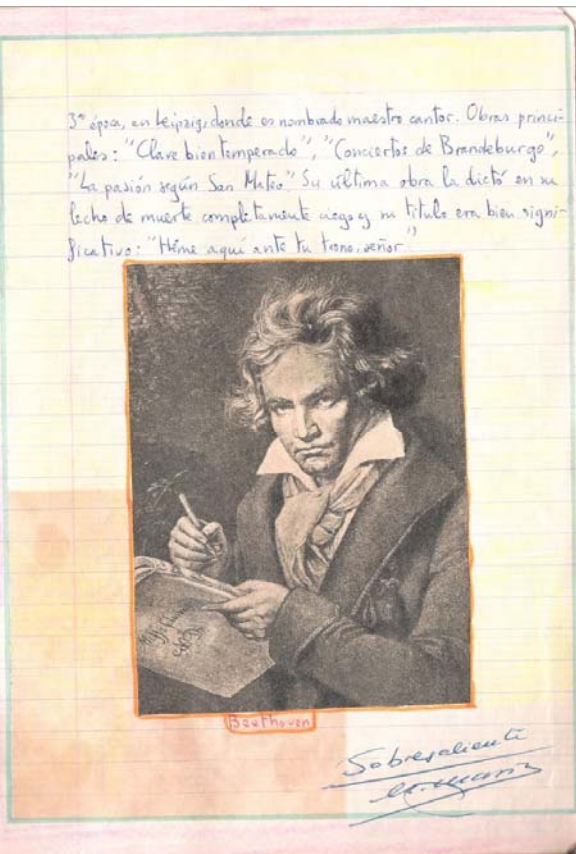 3ª época, en Leipzig, donde es nombrado maestro cantor. Obras princi-
pales: "Clave bien temperado", "Conciertos de Brandeburgo",
"La pasión según San Mateo" Su última obra la dictó en su
lecho de muerte completamente ciego y su titulo era bien signi-
ficativo: "Héme aquí ante tu trono, señor"
Beethoven
Sobresaliente